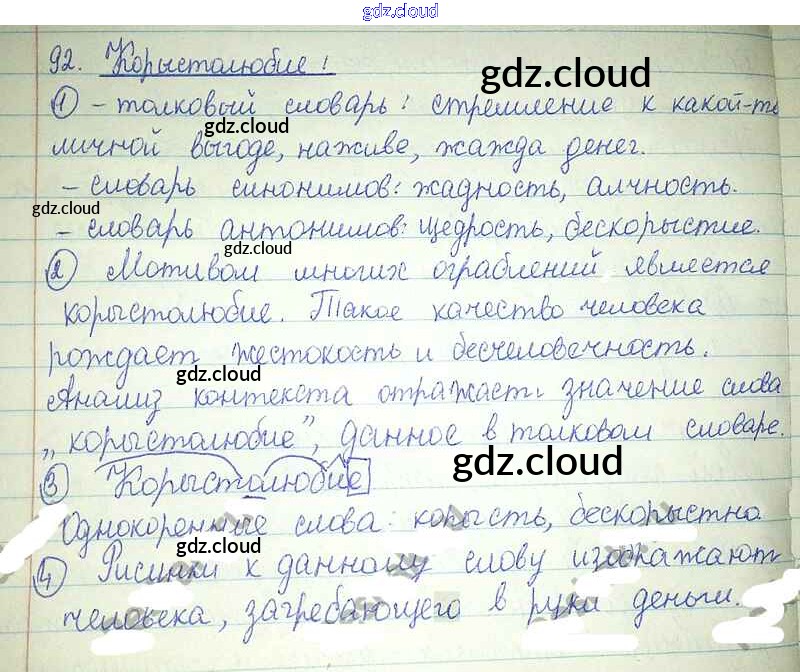 gdz.cloud
92. Корыстолюбие!
gdz.cloud
① – толковый словарь: стремление к какой-то
gdz.cloud
личной выгоде, наживе, жажда денег.
– словарь синонимов: жадность, алчность.
gdz.cloud
– словарь антонимов: щедрость, бескорыстие.
gdz.cloud
② Мотивом многих ограблений, является
корыстолюбие. Такое качество человека
рождает жестокость и бесчеловечность.
gdz.cloud
Анализ контекста отражает значение слова
„корыстолюбие”, данное в толковом словаре.
gdz.cloud
③ Корыстолюбие
Однокоренные слова: корысть, бескорыстно
gdz.cloud
④ Рисунки к данному слову изоскажают
человека, загребающего в руки деньги.